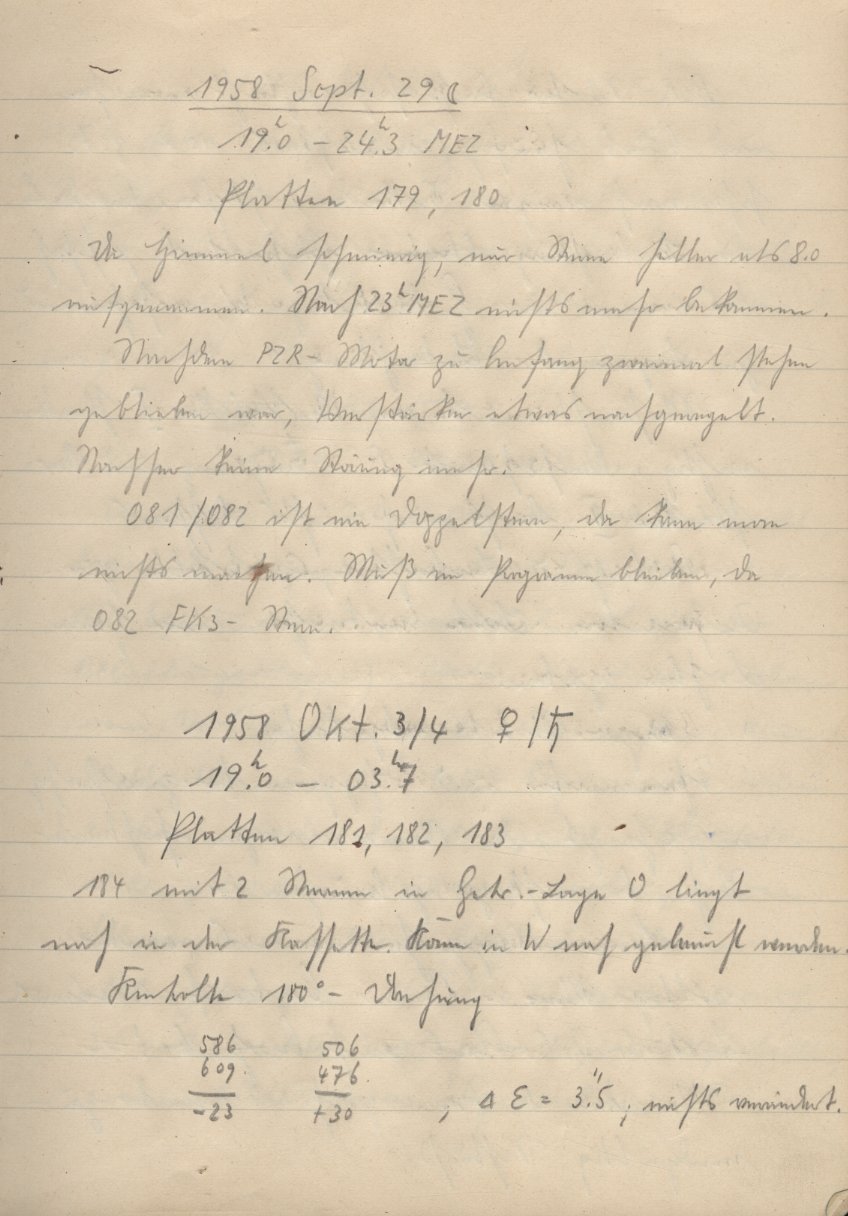 1958 Sept. 29. ☾
19.ʰ0 – 24.ʰ3 MEZ
Platten 179, 180
Himmel schmierig, nur Sterne heller als 8.0
aufgenommen. Nach 23ʰ MEZ nichts mehr bekommen.
Nachdem PZR-Motor zu Anfang zweimal stehen
geblieben war, Verstärker etwas nachgeregelt.
Nachher keine Störung mehr.
081/082 ist ein Doppelstern, da kann man
nichts machen. Muß im Programm bleiben, da
082 FK3-Stern.
1958 Okt. 3/4 ♀/♄
19.ʰ0 – 03.ʰ7
Platten 181, 182, 183
184 mit 2 Sternen in -Lage O liegt
noch in der Kassette. Kann in W noch gebraucht werden.
Kontrolle 180°-Drehung
586 506
609 476
-23 +30 , Δ Ɛ = 3."5 ; nichts verändert.